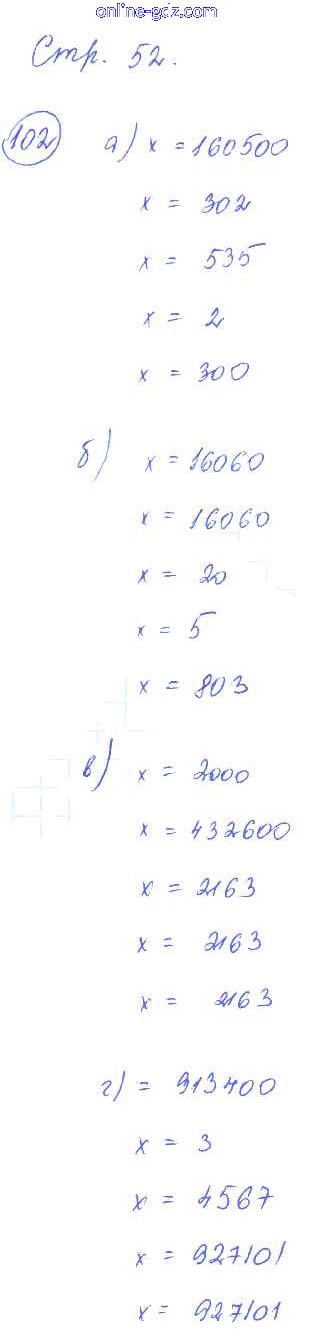 online-gdz.com
Стр. 52.
102 а) x = 160500
x = 302
x = 535
x = 2
x = 300
б) x = 16060
x = 16060
x = 20
x = 5
x = 803
в) x = 2000
x = 432600
x = 2163
x = 2163
x = 2163
г) = 913400
x = 3
x = 4567
x = 927101
x = 927101